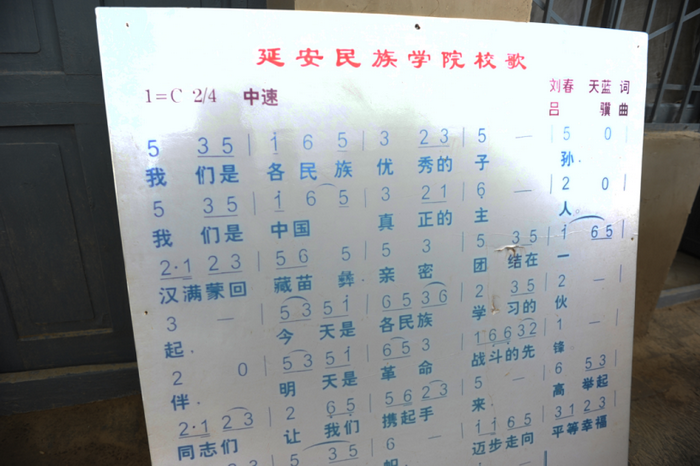 延安民族学院校歌
刘春 天蓝 词
1=C 2/4 中速
吕 骥 曲
5 3 5 | 1 6 5 | 3 2 3 | 5 — | 5 0
我 们是 各 民 族 优 秀的 子 孙.
5 3 5 | 1 6 5 | 3 2 1 | 6 — | 2 0
我 们是 中 国 真 正的 主 人
2·1 2 3 | 5 6 5 | 5 3 | 5 3 5 | 1 6 5
汉满蒙回 藏苗 彝. 亲 密 团 结在 一
3 — | 5 3 5 1 | 6 5 3 6 | 2 3 5 | 2 —
起. 今 天是 各民族 学 习的 伙
2 0 | 5 3 5 1 | 6 5 3 | 1 6 6 3 2 | 1 —
伴. 明 天是 革 命 战斗的先 锋.
2·1 2 3 | 2 6 5 | 5 6 2 3 | 5 — | 6 5 3
同志们 让 我们 携起手 来. 高 举起
5 3 5 | 6 — | 1 1 6 5 | 3 1 2 3
迈步走向 平等幸福